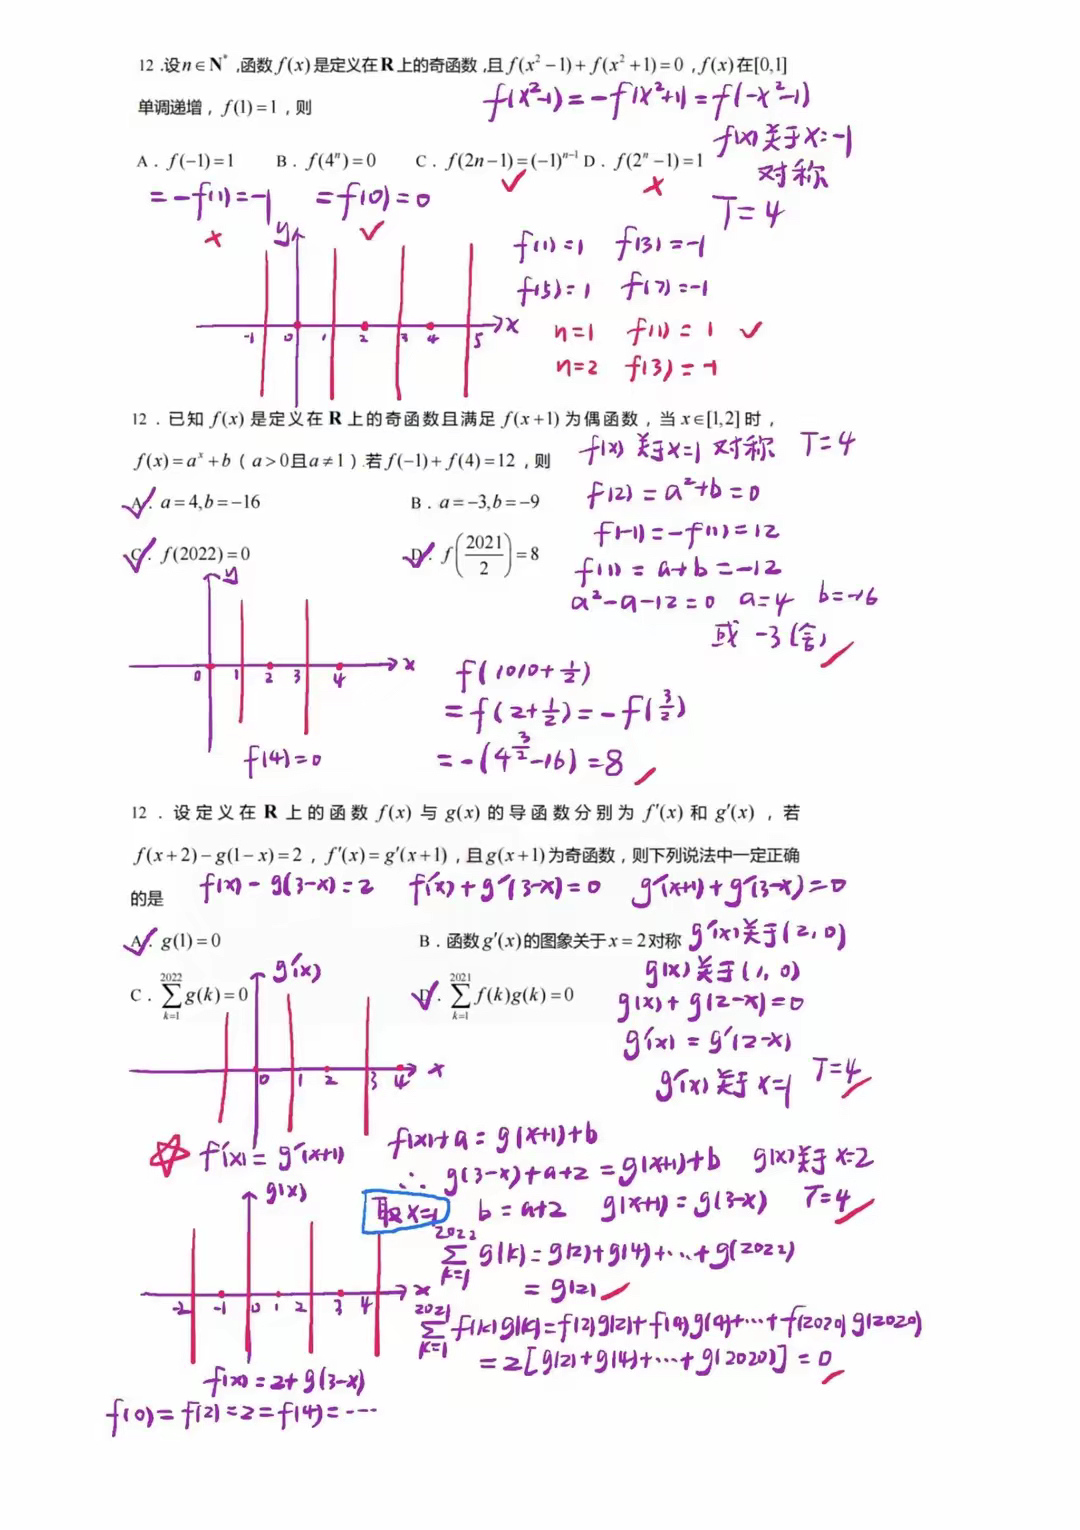 12 .设n∈N*,函数f(x)是定义在R上的奇函数,且f(x²−1)+f(x²+1)=0,f(x)在[0,1]
f(x²-1)=-f(x²+1)=f(-x²-1)
单调递增，f(1)=1，则
f(x)关于x=-1
对称
T=4
A．f(−1)=1 B．f(4ⁿ)=0 C．f(2n−1)=(−1)ⁿ⁻¹ D．f(2ⁿ−1)=1
=-f(1)=-1 =f(0)=0 ✓ ×
× ✓
y
f(1)=1 f(3)=-1
f(5)=1 f(7)=-1
n=1 f(1)=1 ✓
n=2 f(3)=-1
-1 0 1 2 3 4 5 x
12．已知f(x)是定义在R上的奇函数且满足f(x+1)为偶函数，当x∈[1,2]时，
f(x)关于x=1对称 T=4
f(x)=aˣ+b（a>0且a≠1).若f(−1)+f(4)=12，则
f(2)=a²+b=0
A．a=4,b=−16 B．a=−3,b=−9
f(-1)=-f(1)=12
C．f(2022)=0 D．f(2021/2)=8
f(1)=a+b=-12
a²-a-12=0 a=4 b=-16
或-3(舍)
y
0 1 2 3 4 x
f(4)=0
f(1010+1/2)
=f(2+1/2)=-f(3/2)
=-(4^(3/2)-16)=8
12．设定义在R上的函数f(x)与g(x)的导函数分别为f′(x)和g′(x)，若
f(x+2)−g(1−x)=2，f′(x)=g′(x+1)，且g(x+1)为奇函数，则下列说法中一定正确
的是
f(x)-g(3-x)=2 f'(x)+g'(3-x)=0 g'(x+1)+g'(3-x)=0
A．g(1)=0 B．函数g′(x)的图象关于x=2对称
g'(x)关于(2,0)
g(x)关于(1,0)
C．∑_{k=1}^{2022} g(k)=0 D．∑_{k=1}^{2021} f(k)g(k)=0
g(x)+g(2-x)=0
g'(x)=g'(2-x)
g'(x)关于x=1 T=4
g'(x)
0 1 2 3 4 x
☆ f'(x)=g'(x+1)
f(x)+a=g(x+1)+b
∴g(3-x)+a+2=g(x+1)+b g(x)关于x=2
取x=1 b=a+2 g(x+1)=g(3-x) T=4
g(x)
-2 -1 0 1 2 3 4 x
∑_{k=1}^{2022} g(k)=g(2)+g(4)+…+g(2022)
=g(2)
∑_{k=1}^{2021} f(k)g(k)=f(2)g(2)+f(4)g(4)+…+f(2020)g(2020)
=2[g(2)+g(4)+…+g(2020)]=0
f(x)=2+g(3-x)
f(0)=f(2)=2=f(4)=…